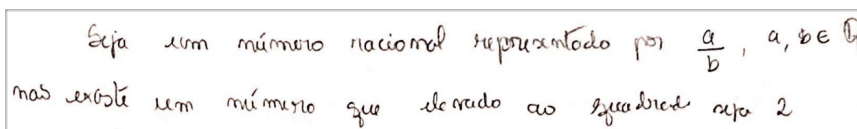 Seja um número racional representado por a/b, a, b ∈
nas existe um número que elevado ao quadrado seja 2